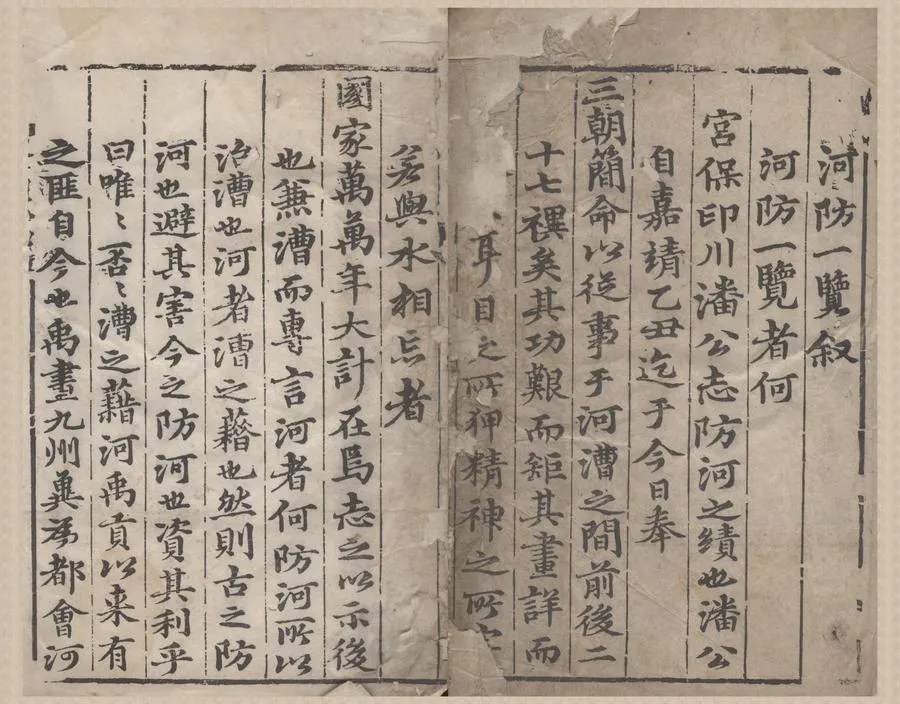 河防一覽叙
河防一覽者何
宮保印川潘公志防河之績也潘公
自嘉靖乙丑迄于今日奉
三朝簡命以從事于河漕之間前後二
十七禩矣其功艱而矩其畫詳而
耳目之所狎精神之所
若與水相忘者
國家萬萬年大計在焉志之以示後
也兼漕而專言河者何防河所以
治漕也河者漕之藉也然則古之防
河也避其害今之防河也資其利乎
曰唯〻否〻漕之藉河禹貢以来有
之匪自今也禹畫九州冀為都會河